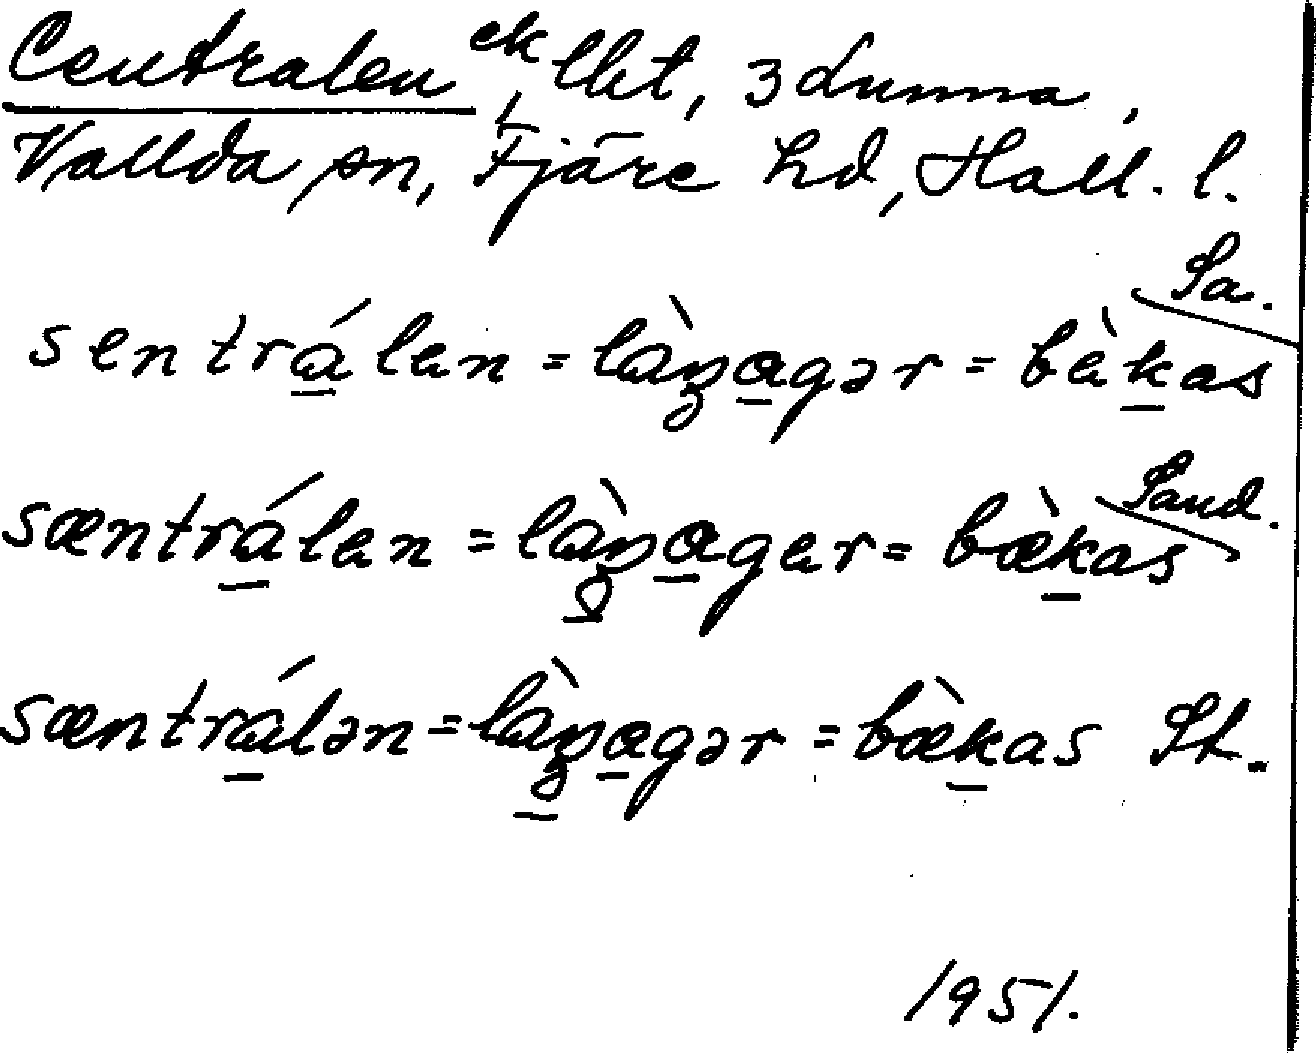 Centralen, ek lht, 3 dunna,
Vallda sn, Fjäre hd, Hall. l.
Sa.
sentrálen = làŋagər = bèkas
Sand.
sæntrálen = làŋager = bæ̀kas
sæntrálən = làŋagər = bæ̀kas St.
1951.